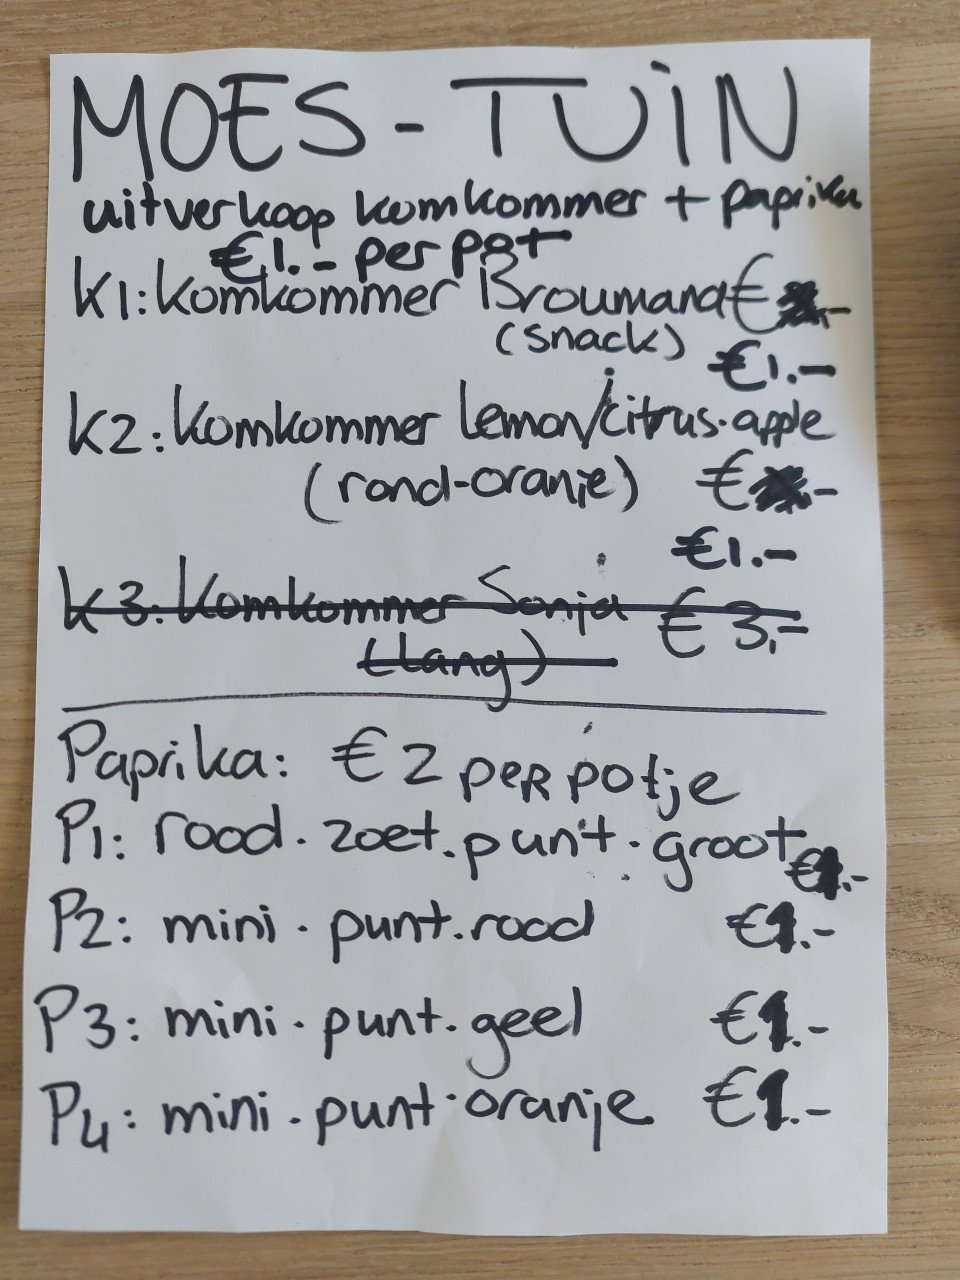 MOES-TUiN
uitverkoop komkommer + paprika
€1.- per pot
K1: Komkommer Broumana €
(snack)
€1.-
K2: Komkommer Lemon/citrus.apple
(rond-oranje) €
€1.-
K3: Komkommer Sonja € 3,-
(Lang)
Paprika: € 2 per potje
P1: rood.zoet.punt.groot €1.-
P2: mini.punt.rood €1.-
P3: mini.punt.geel €1.-
P4: mini.punt.oranje €1.-